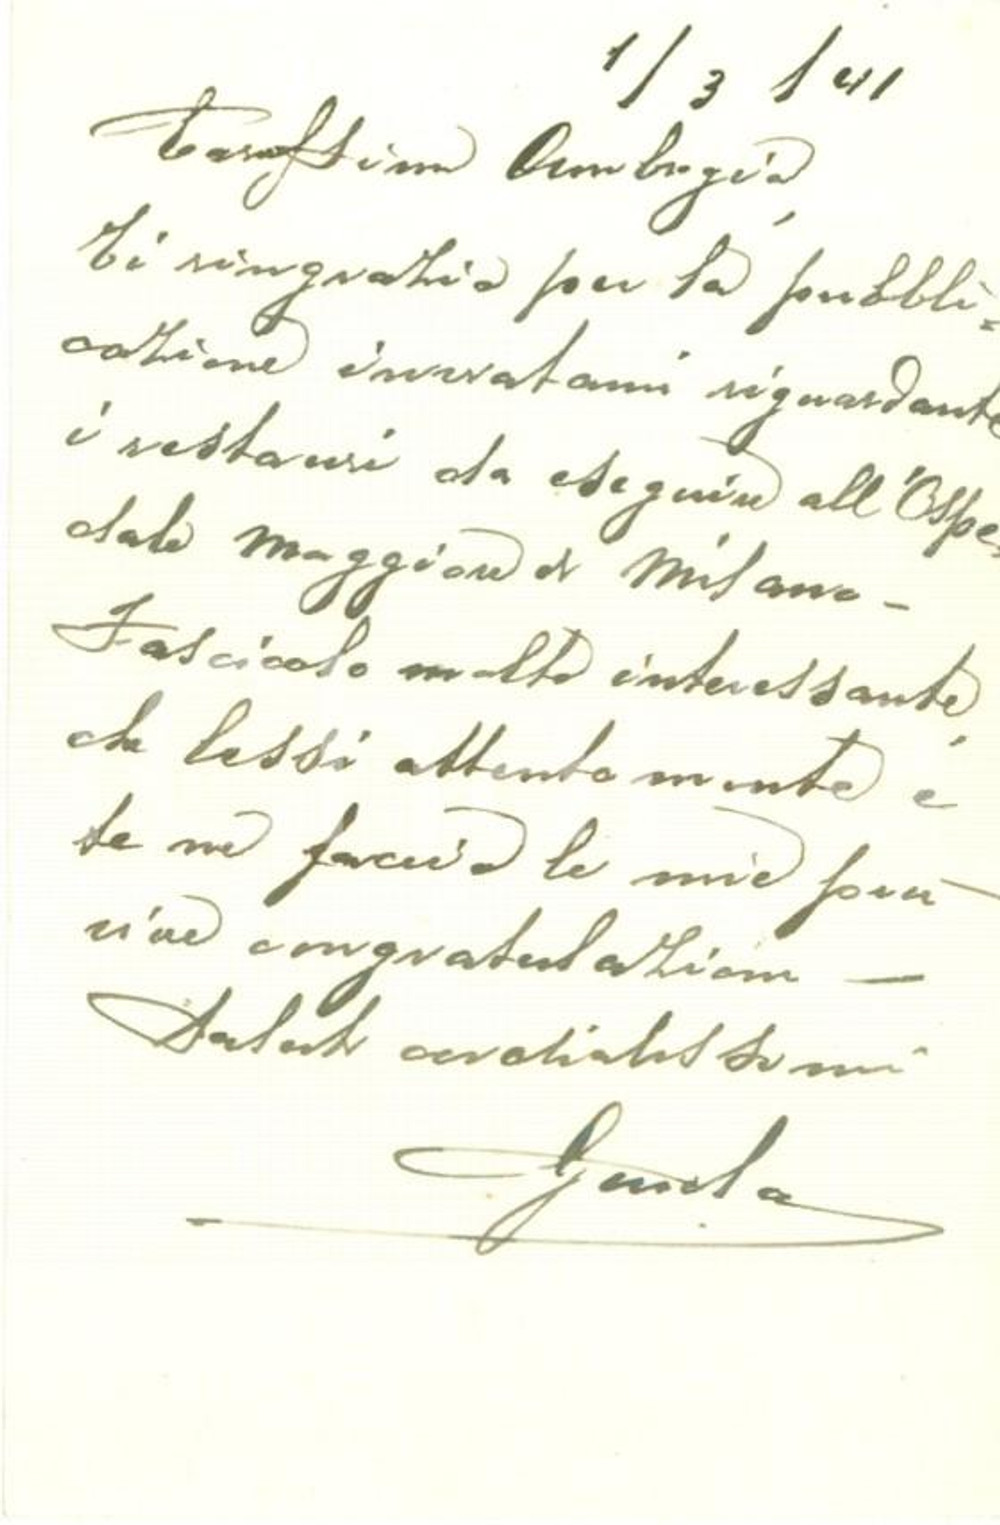 1/3/41
Carissimo Ambrogio,
ti ringrazio per la pubbli=
cazione inviatami riguardante
i restauri da eseguire all'Ospe=
dale Maggiore di Milano -
Fascicolo molto interessante,
che lessi attentamente e
te ne faccio le mie più
vive congratulazioni —
Saluti cordialissimi